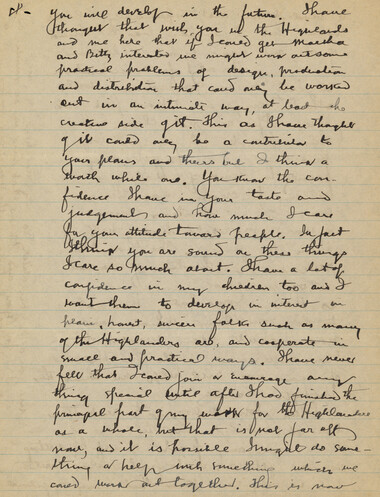 you will develop in the future. I have
thought that with you in the Highlands
and me here that if I could get Martha
and Betty interested we might work out some
practical problems of design, production
and distribution that could only be worked
out in an intimate way, at least the
creative side of it. This as I have thought
of it could only be a contribution to
your plans and theirs but I think a
worth while one. You know the con-
fidence I have in your taste and
judgement and how much I care
for your attitude toward people. In fact
I think you are sound on these things
I care so much about. I have a lot of
confidence in my children too and I
want them to develop in interest in
plain, honest, sincere folks such as many
of the Highlanders are, and cooperate in
small and practical ways. I have never
felt that I could join or encourage any
thing special until after I had finished the
principal part of my work for the Highlanders
as a whole, but that is not far off
now, and it is possible I might do some-
thing or help with something which we
could work out together. This is now